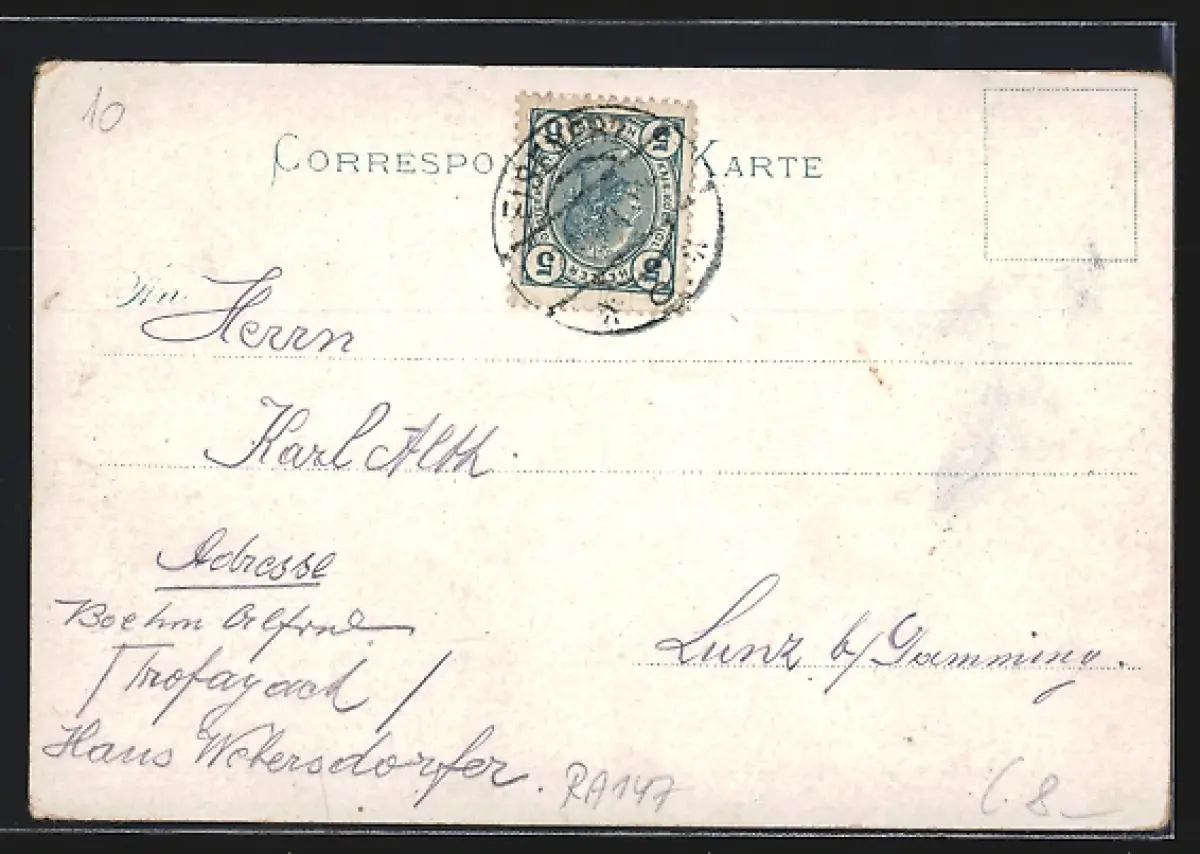 10
CORRESPON KARTE
5 5 5 5
An
Herrn
Karl Alth.
Adresse
Boehm Alfred
/Trofayach/
Lunz b/ Gamming.
Hans Webersdorfer.
RA147
8